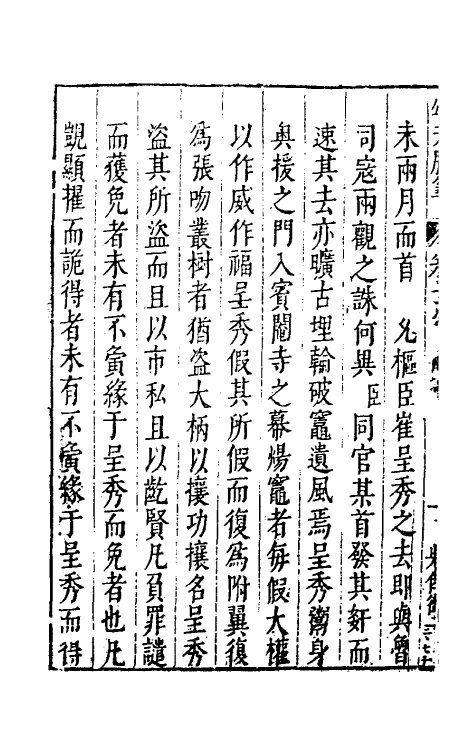 未兩月而首 允樞臣崔呈秀之去即與魯
司寇兩觀之誅何異臣同官某首發其奸而
速其去亦曠古埋輪破竈遺風焉呈秀鬻身
奧援之門入賓閹寺之幕煬竈者每假大權
以作威作福呈秀假其所假而復為附翼復
為張吻叢樹者猶盜大柄以攘功攘名呈秀
盜其所盜而且以市私且以齕賢凡負罪譴
而獲免者未有不夤緣于呈秀而免者也凡
覬顯擢而詭得者未有不夤緣于呈秀而得